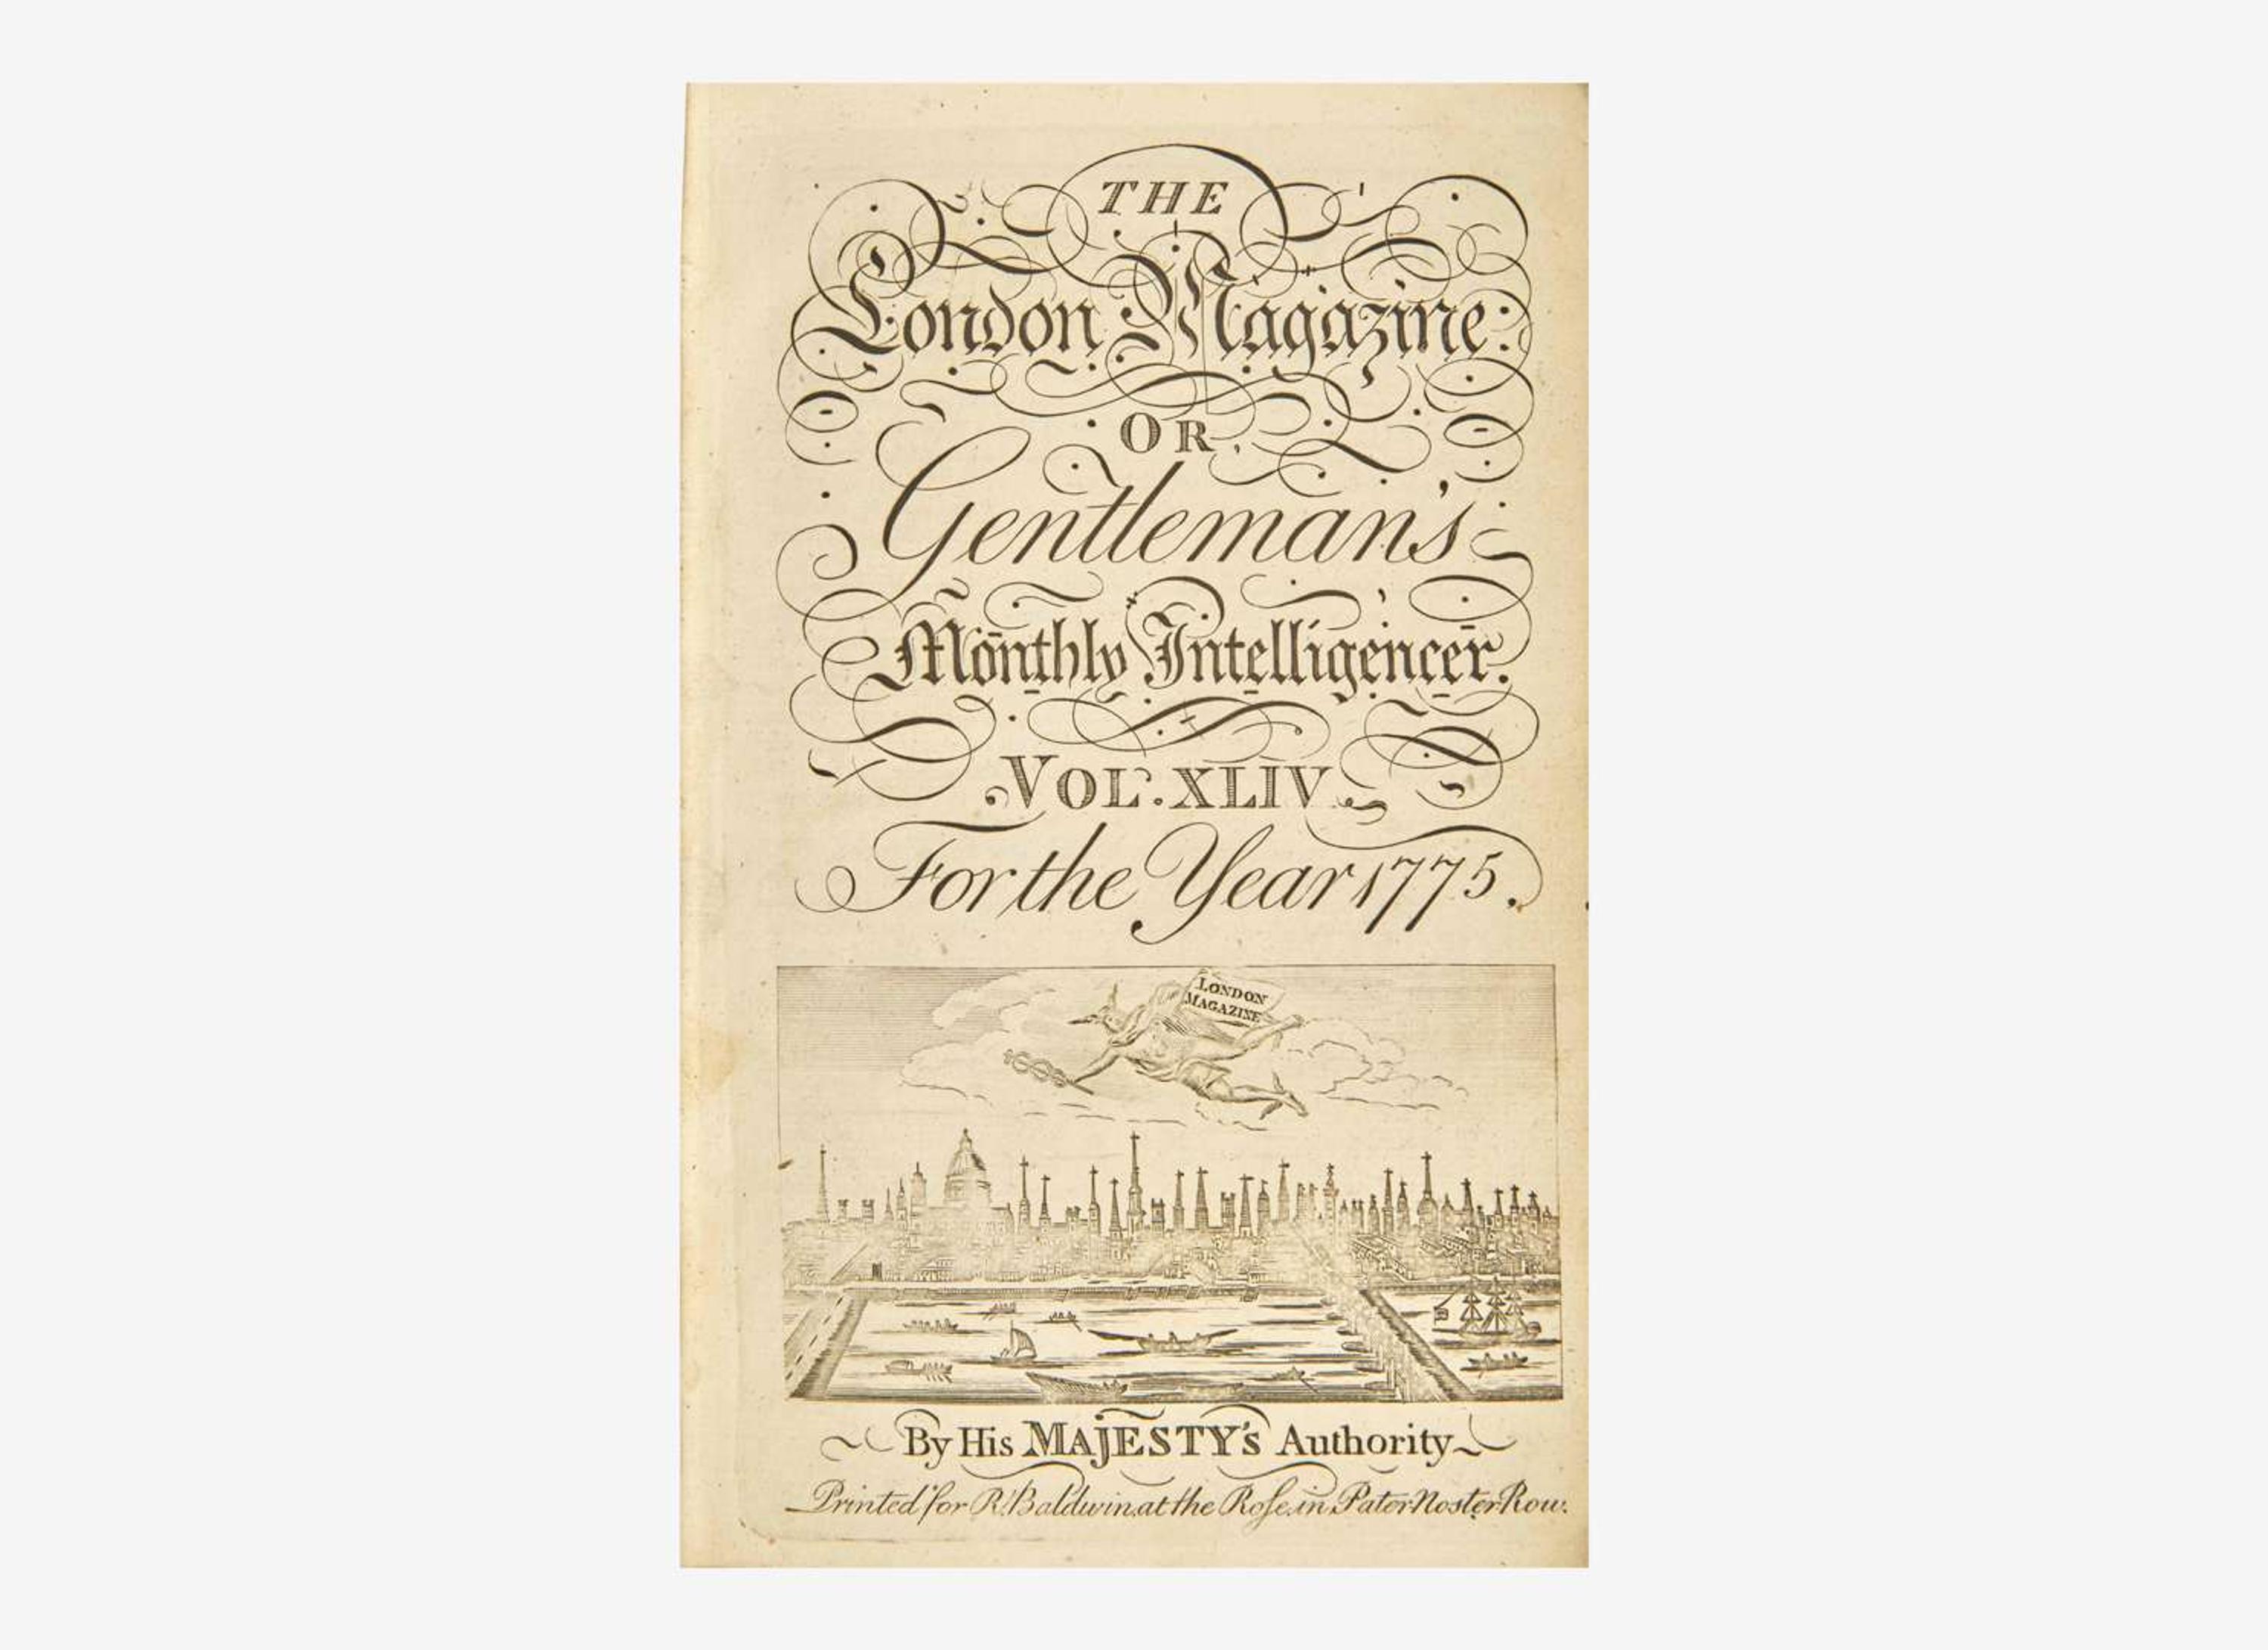 THE
London Magazine:
OR
Gentleman's
Monthly Intelligencer.
VOL. XLIV.
For the Year 1775.
LONDON
MAGAZINE
By His MAJESTY's Authority
Printed for R. Baldwin at the Roſe in Pater Noster Row.